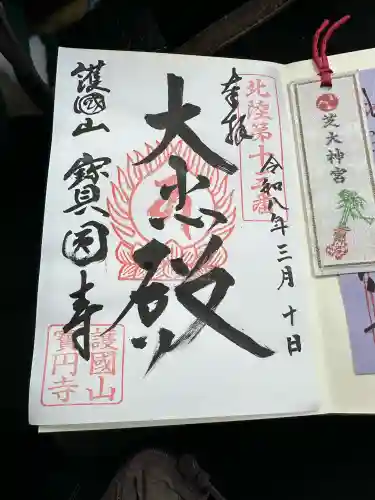 奉拝
北陸第十二番
令和八年三月十日
大悲殿
護國山
寳圓寺
護國山
寳円寺
芝大神宮